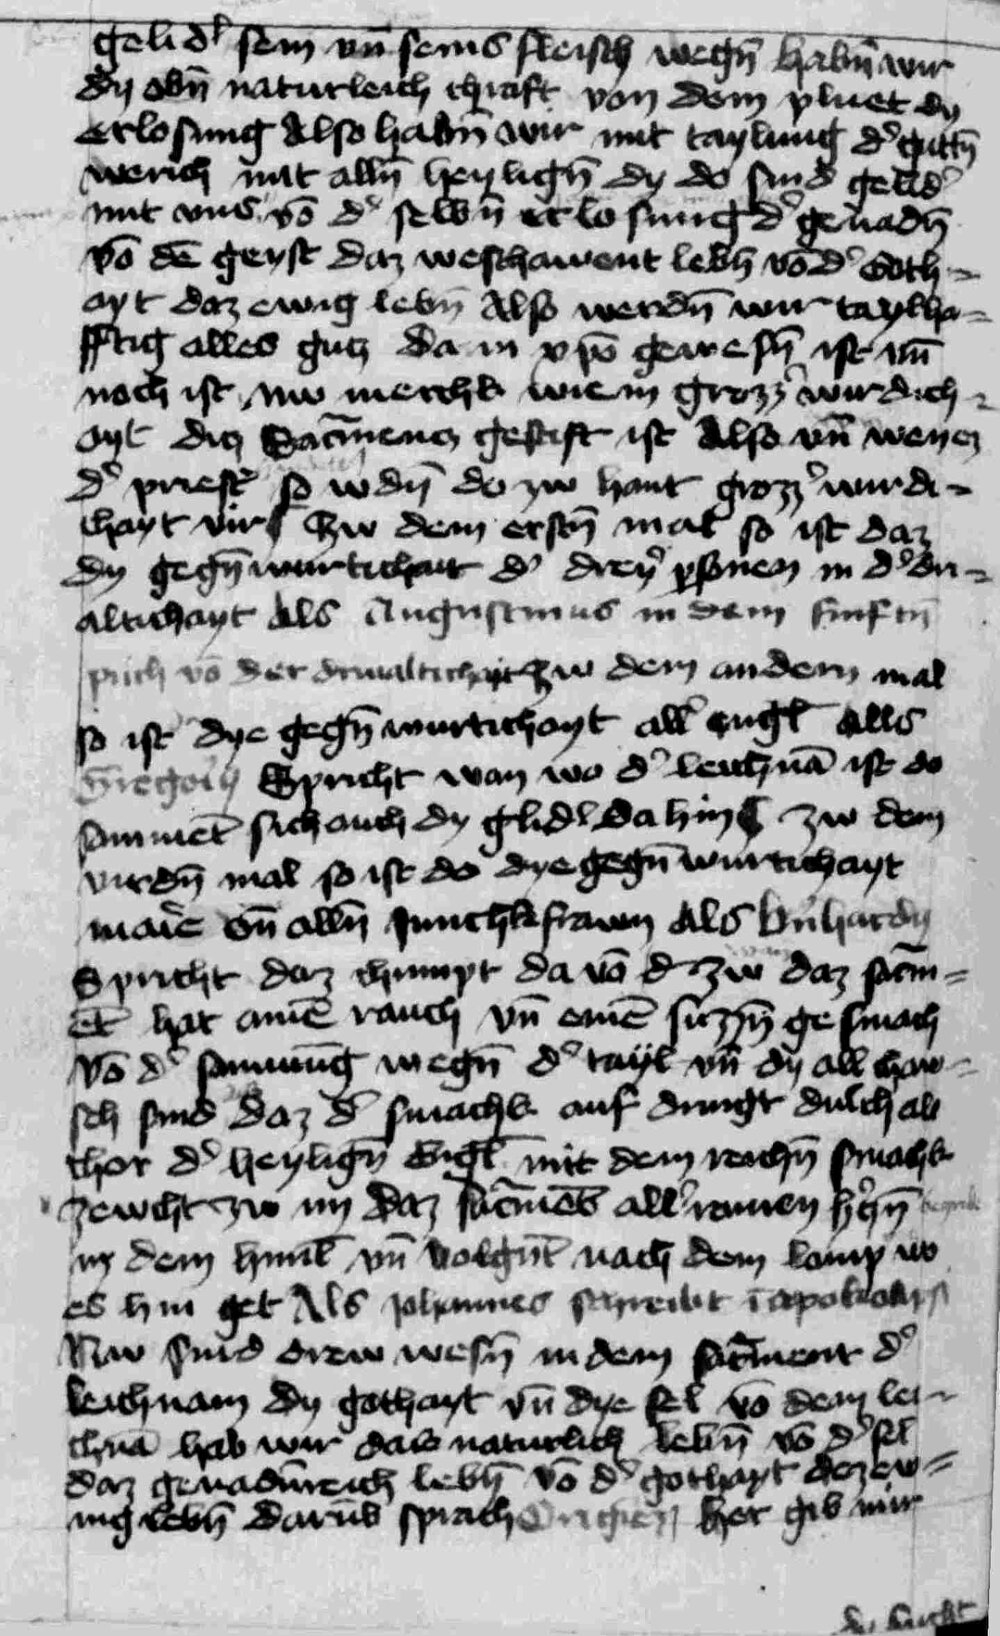 gelidl sein vn̄ seins fleisch wegn̄ habn̄ wir
dy obn̄ naturleich chraft von dem pluet dy
erlosung Also habn̄ wir mit taylung d' gutn̄
werich mit alln̄ heylign̄ dy do sind gelid'
mit vns vō d' selbn̄ erlosung d' genadn̄
vō dē geyst daz weschawent lebn̄ vō d' Goth-
ayt daz ewig lebn̄ Also werdn̄ wir taylha-
fftig alles gutz da in xpō gewesn̄ ist vn̄
noch ist nw merchk wie in grozz' wirdich-
ayt ditz Sacmentz gestift ist Also vn̄
d' priest' so wdn̄ do zw hant grozz' wirdi-
chayt vir Zw dem erstn̄ mal so ist daz
dy gegn̄wurtichait d' dreyr psonen in d' dri-
altichayt Als Augustinus in dem funftn̄
puch vō der driualtichayt Zw dem andern mal
so ist dye gegn̄wurtichayt all' engl Alls
Gregori Spricht wan wo d' leichnā ist do
sammēt sich auch dy glidl da hin Zw dem
virdn̄ mal so ist do dye gegn̄wurtichayt
marie vn̄ alln̄ Junchkfrawn Als bn̄hardy
Spricht daz chumpt da vō d' zw daz sacm-
ēt hat ainē rauch vn̄ einē suzzn̄ gesmach
vō d' samnung wegn̄ d' tayl vn̄ dy all chew-
sch sind daz d' smachk auf dringt durch all
chor d' heylign̄ Engl mit dem reichn̄ smachk
zewcht zw im daz sacmēt all' rainen
in dem himl vn̄ volgnt nach dem lamp wo
es hin get Als Johannes schreibt
Nw sind drew wesn̄ in dem sacment d'
leichnam dy gothayt vn̄ dye sel vō dem lei-
chnā hab wir das naturlich lebn̄ vō d' sel
daz genadnreich lebn̄ vō d' gothayt daz ew-
nig lebn̄ darūb sprach Origenes her gib mir